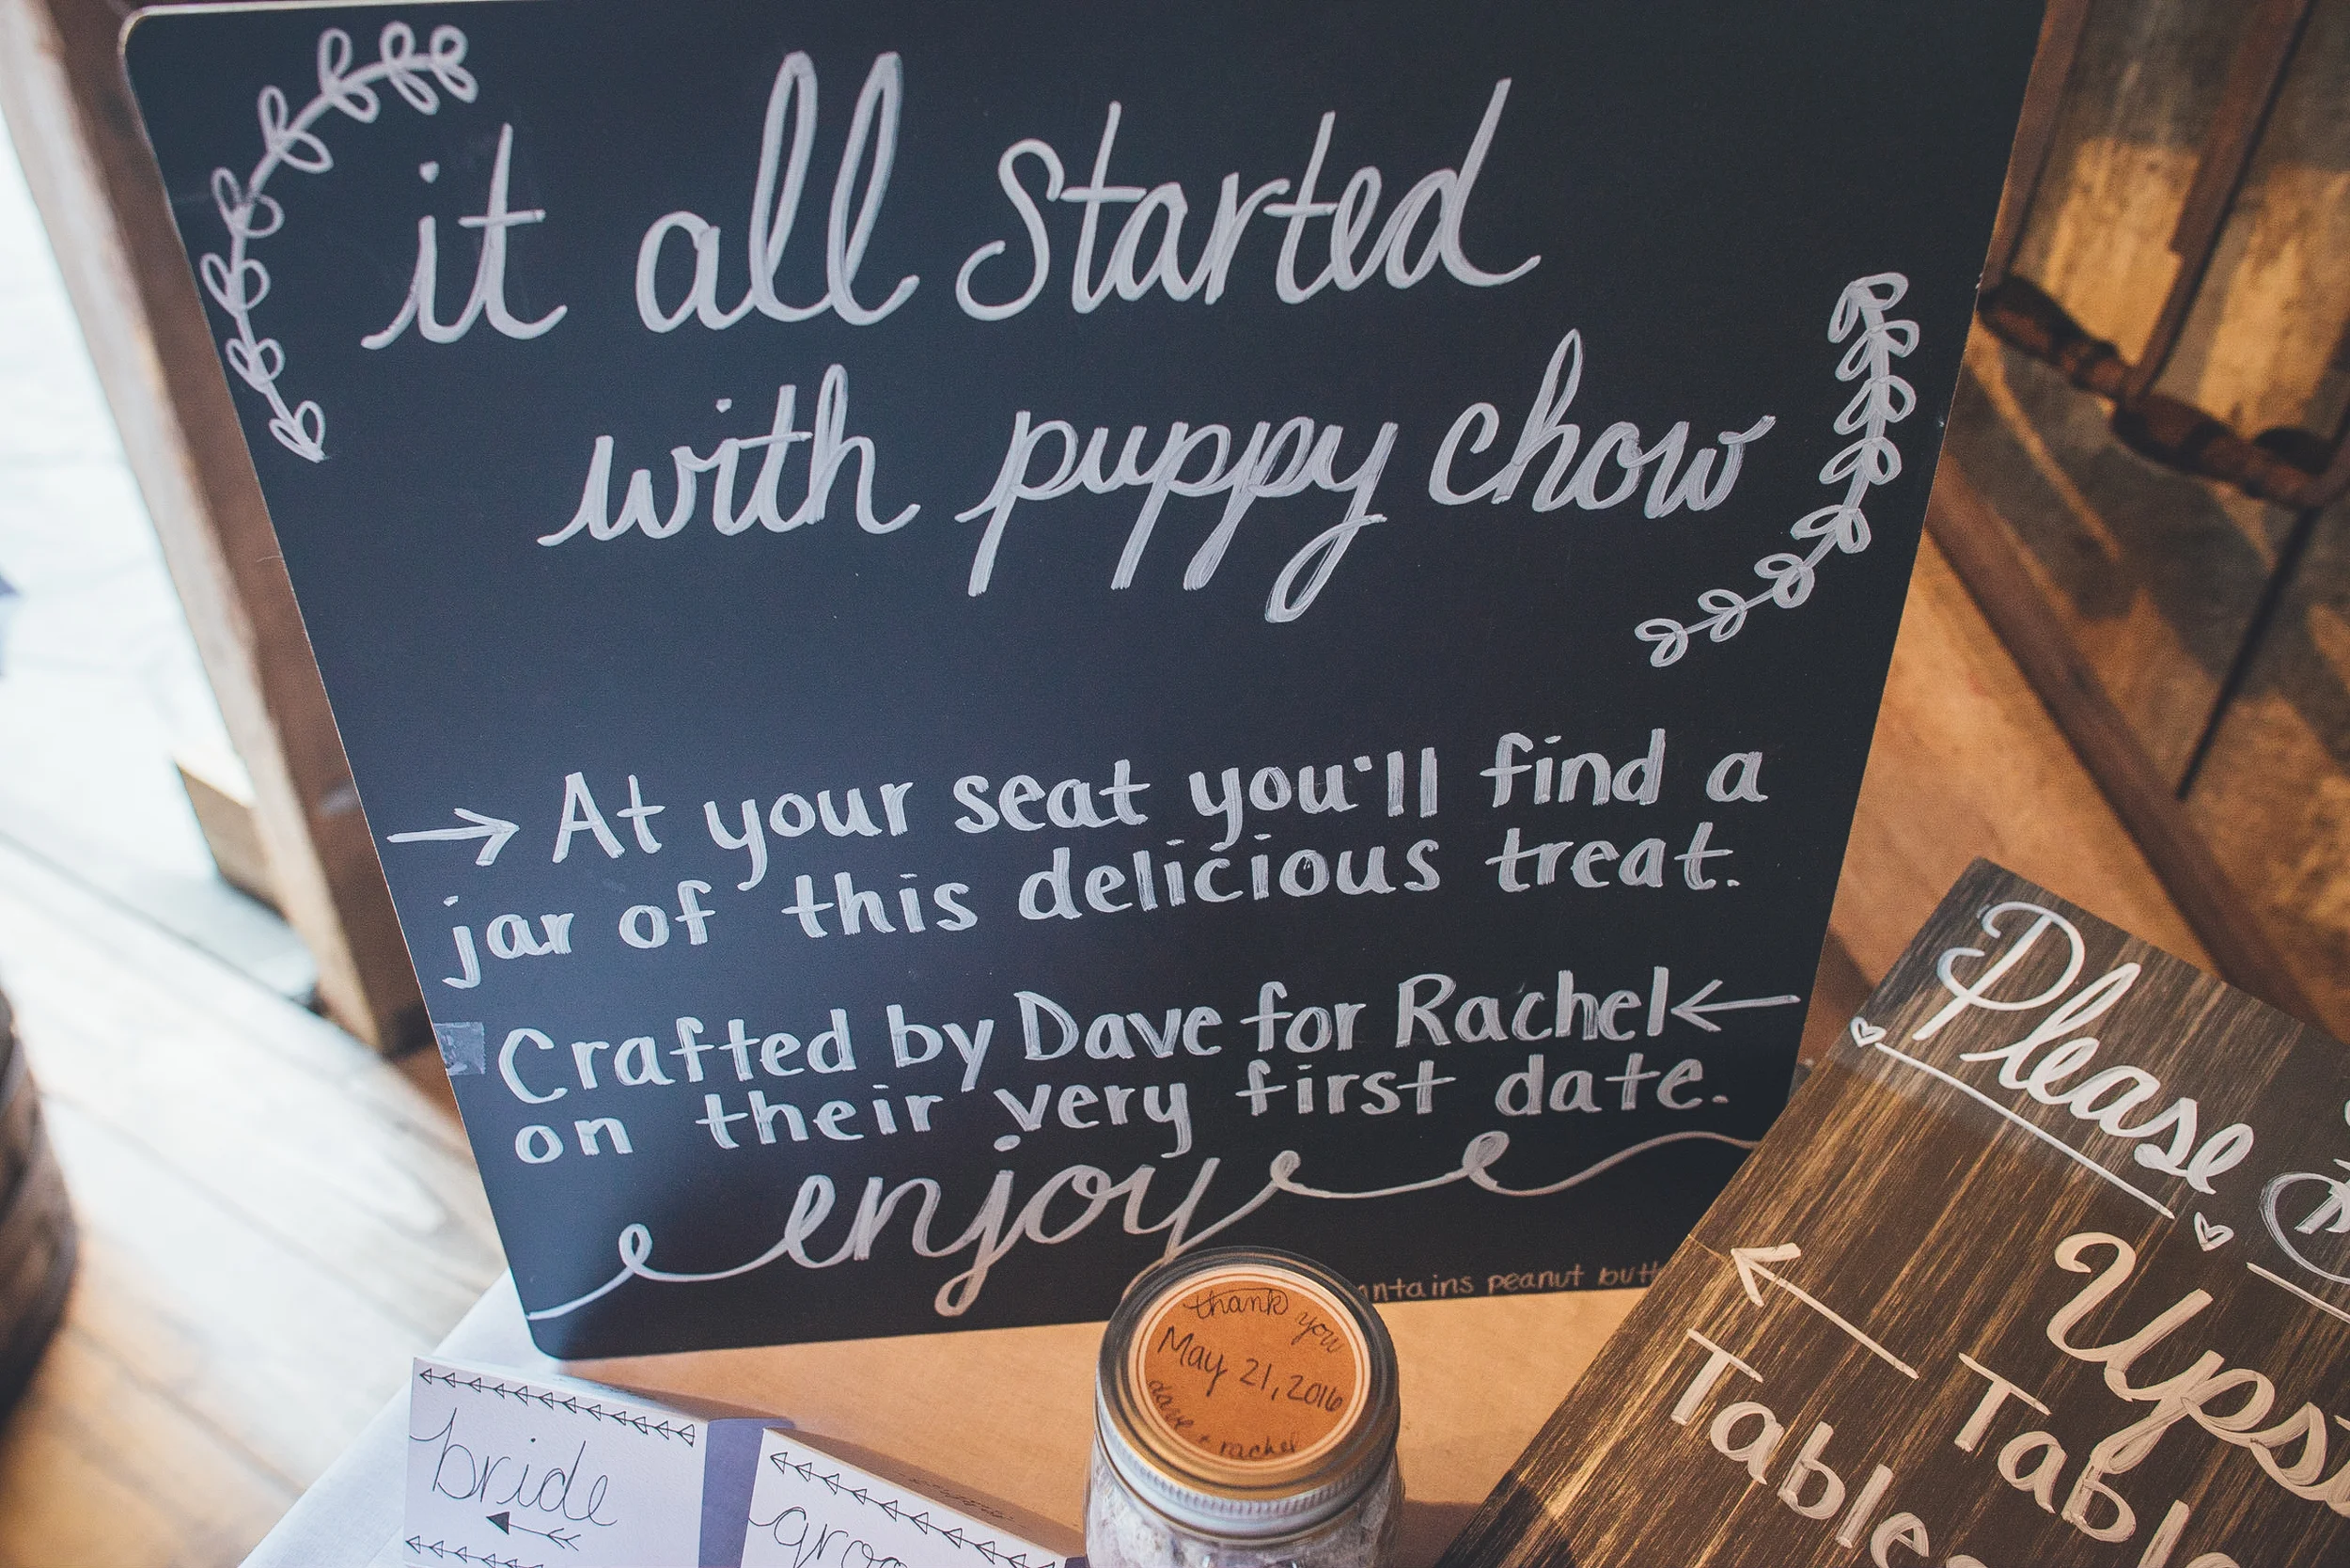 it all started
with puppy chow
At your seat you'll find a
jar of this delicious treat.
Crafted by Dave for Rachel
on their very first date.
enjoy
peanut
thank you
May 21, 2016
dave + rachel
bride
Please